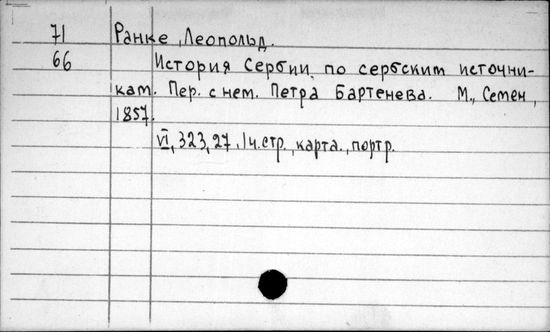 71 Ранке, Леопольд.
66 История Сербии по сербским источни-
кам. Пер. с нем. Петра Бартенева. М., Семен,
1857.
VI, 323, 27, 1ч.стр., карта., портр.